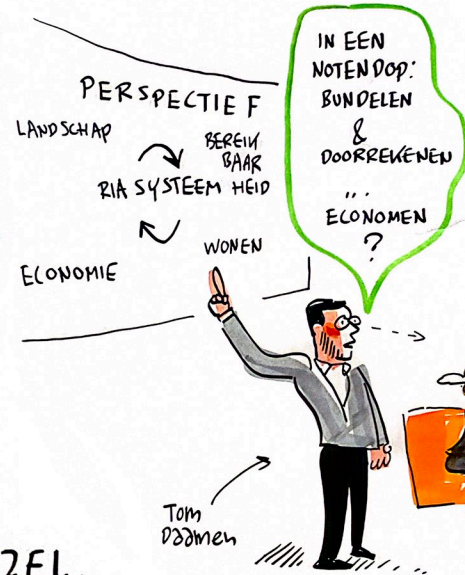 PERSPECTIEF
LANDSCHAP
BEREIK
BAAR
HEID
RIA SYSTEEM
WONEN
ECONOMIE
IN EEN
NOTENDOP:
BUNDELEN
&
DOORREKENEN
...
ECONOMEN
?
Tom
Daamen